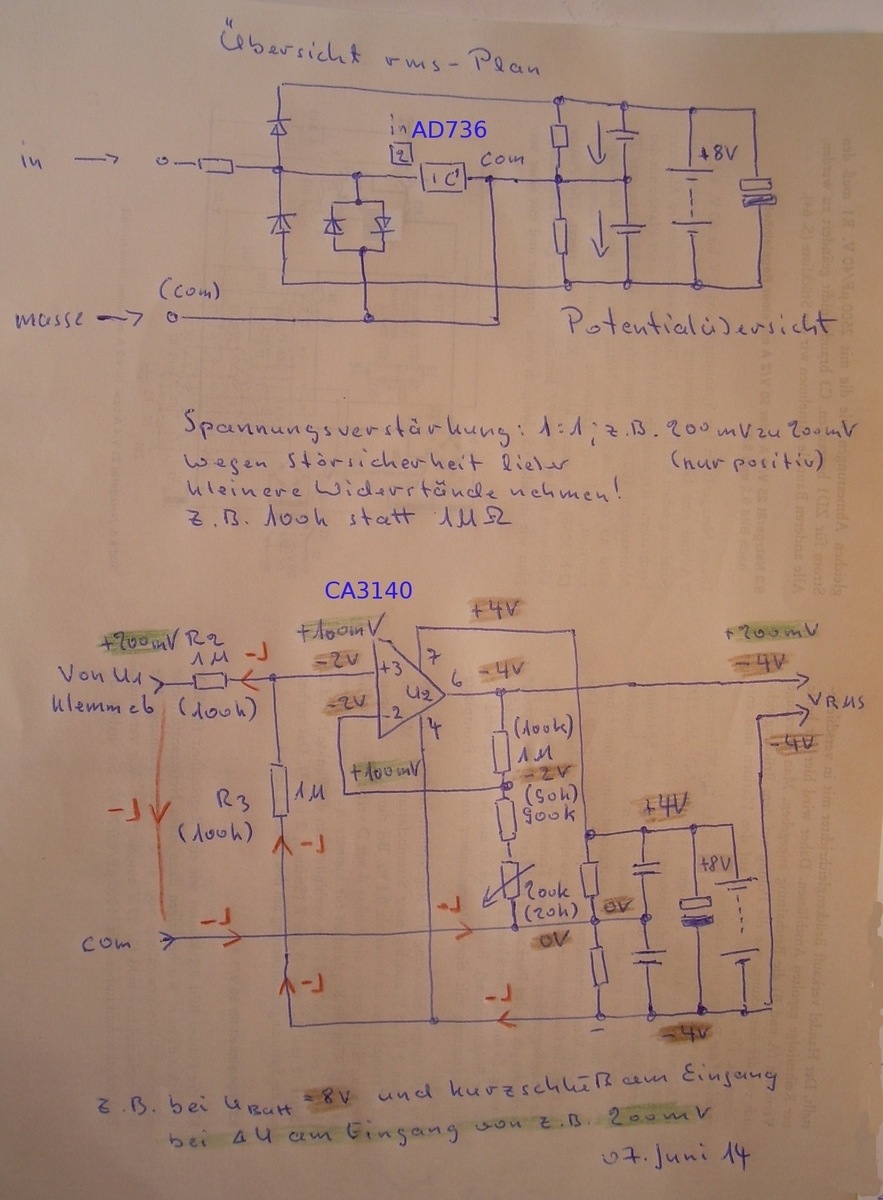 Übersicht rms-Plan
in AD736
2
in
IC
com
+8V
(com)
masse
Potentialübersicht
Spannungsverstärkung: 1:1; z.B. 200mV zu 200mV
wegen Störsicherheit lieber (nur positiv)
kleinere Widerstände nehmen!
z.B. 100k statt 1MΩ
CA3140
+4V
+200mV R2 1M
-I
+100mV
-2V
+3
7
U2
6
-4V
+200mV
-4V
Von U1
Klemme 6
(100k)
-2V
-2
4
VRMS
-4V
(100k)
1M
+100mV
-2V
(90k)
900k
-I
R3
(100k)
1M
-I
+4V
+8V
200k
(20k)
0V
-I
-I
0V
com
-I
-I
-4V
z.B. bei UBatt = 8V und Kurzschluß am Eingang
bei ΔU am Eingang von z.B. 200mV
07. Juni 14